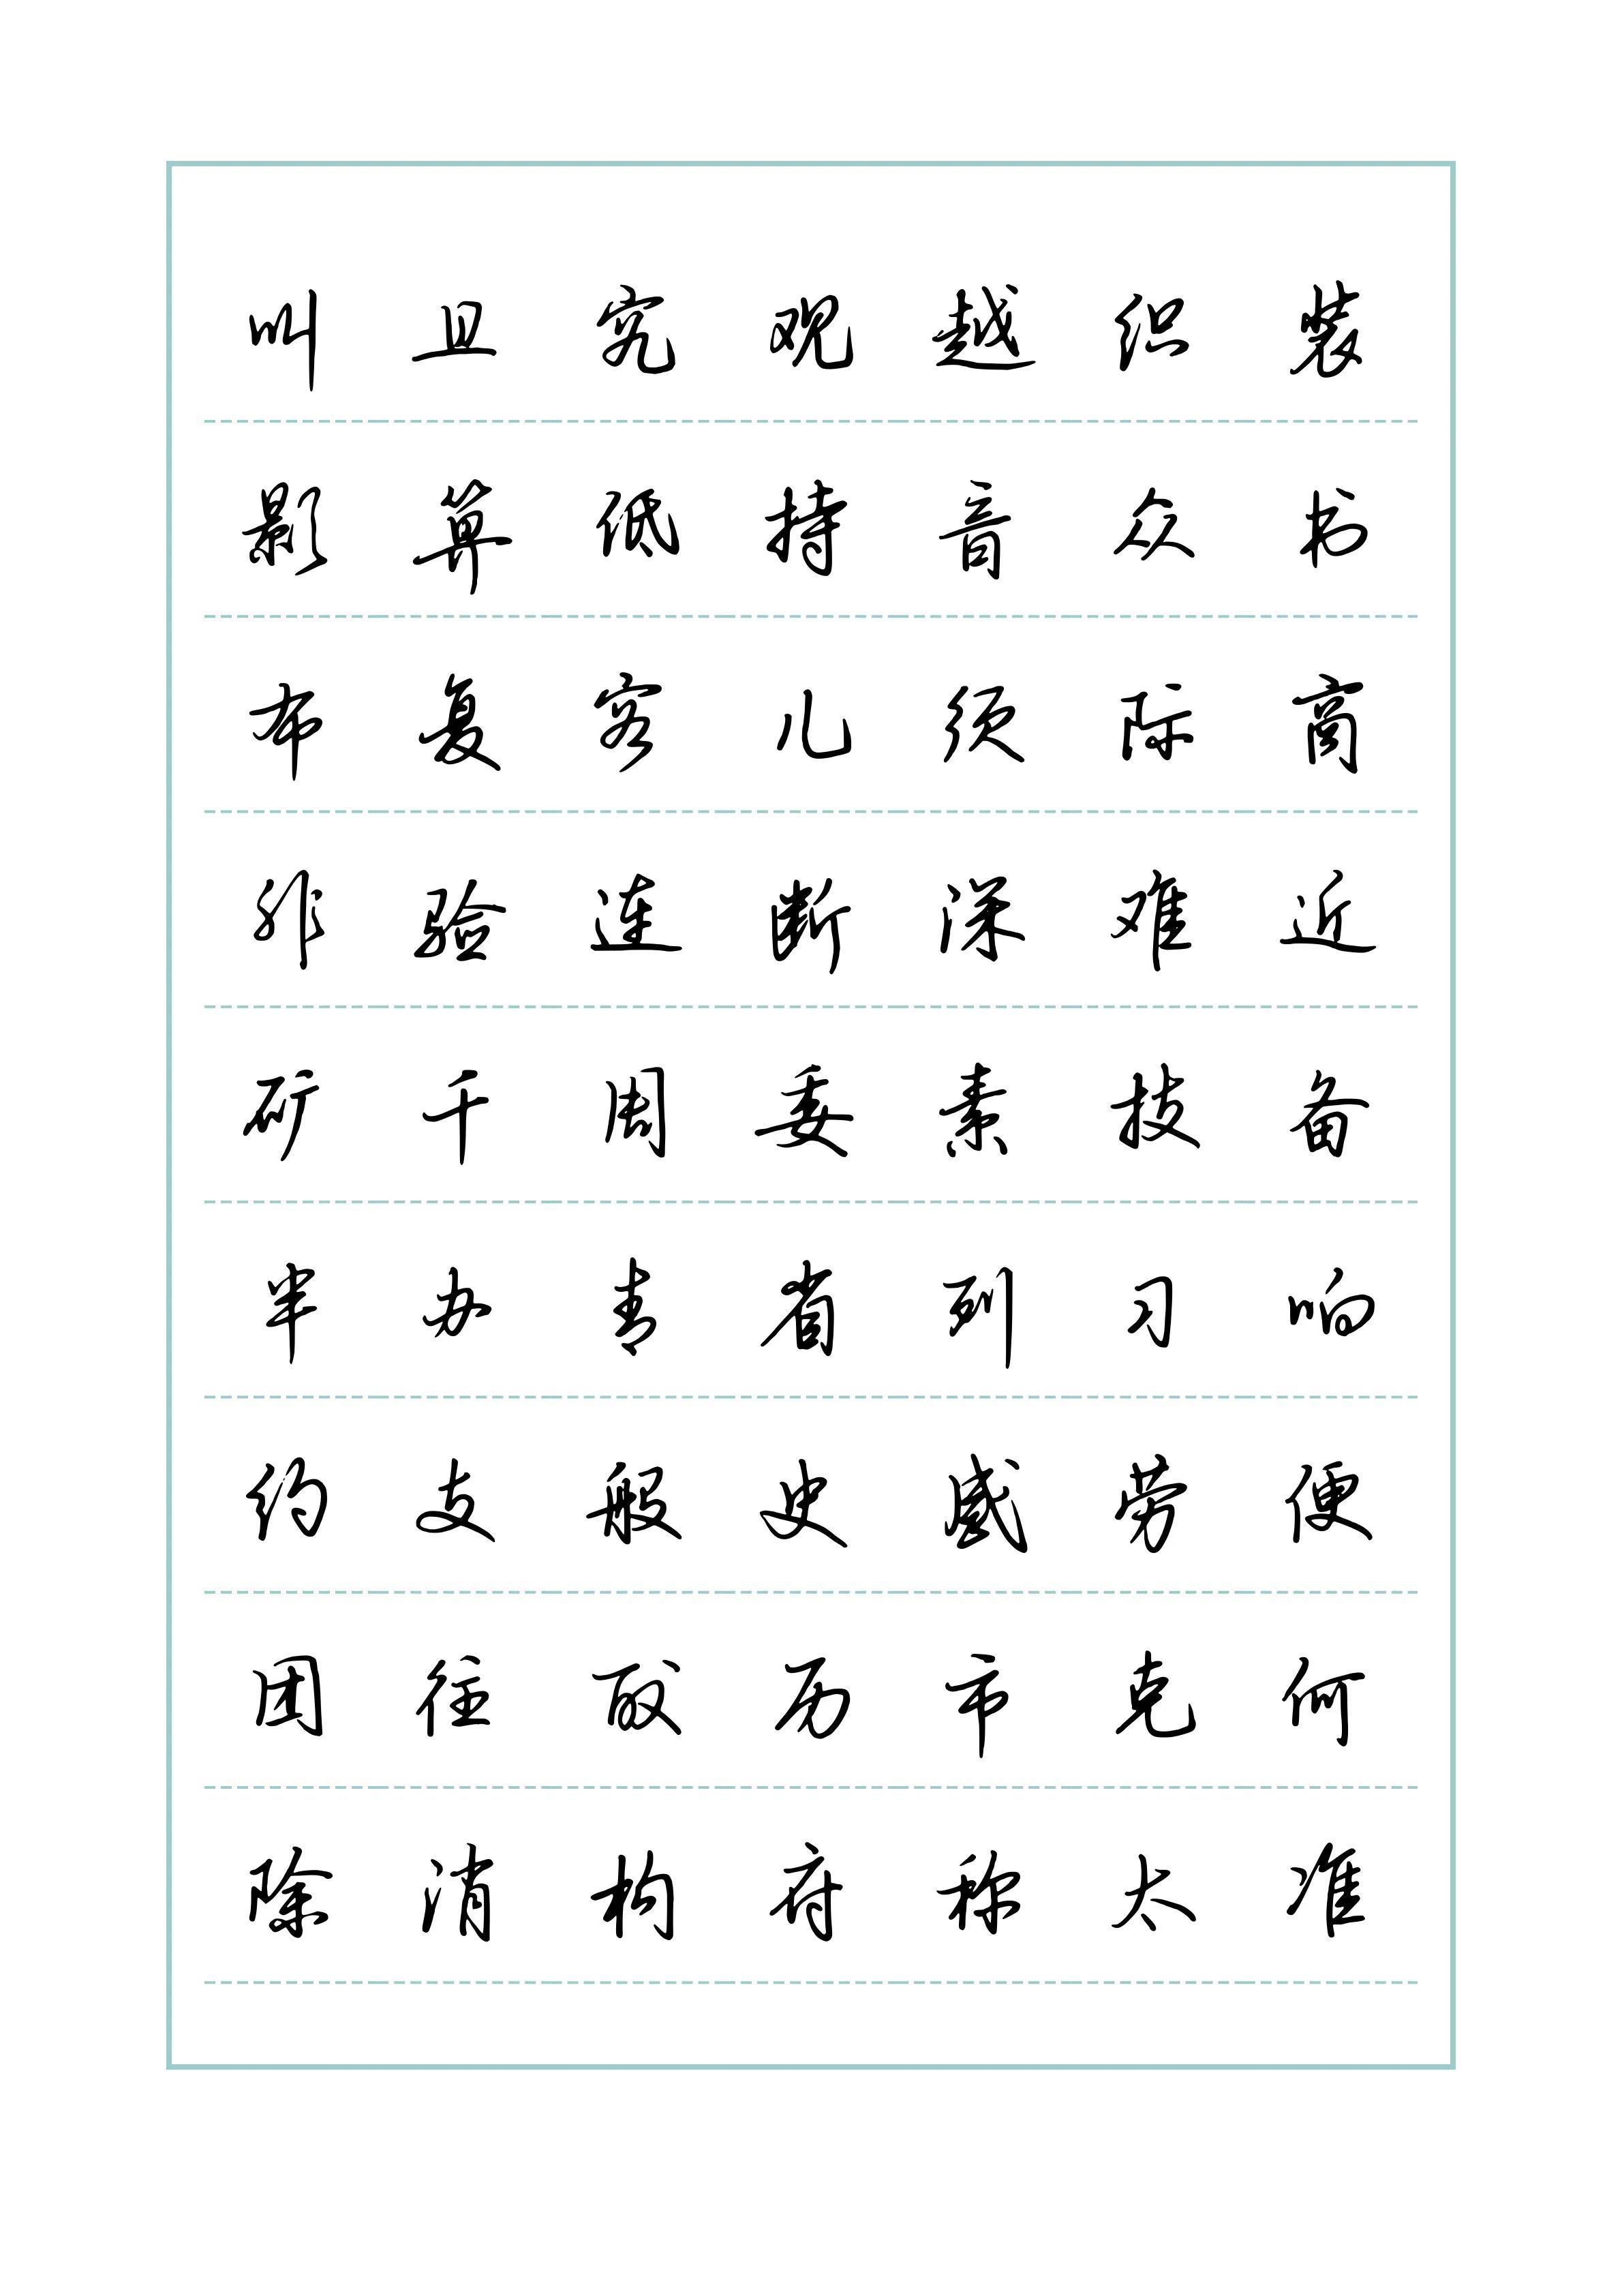 叫 且 究 观 越 织 装
影 算 低 持 音 众 书
布 复 容 儿 须 际 商
非 验 连 断 深 难 近
矿 千 周 委 素 技 备
半 办 青 省 列 习 响
约 支 般 史 感 劳 便
团 往 酸 历 市 克 何
除 消 构 府 称 太 准